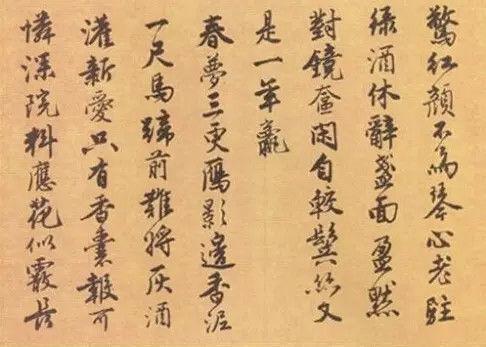 驚紅顏不為琴心老駐
綠酒休辭盞面盈默
對鏡奩閑自較鬢絲又
是一年贏
春夢三更雁影邊香泥
一尺馬蹄前難將灰酒
灌新愛只有香囊報可
憐深院料應花似霰長